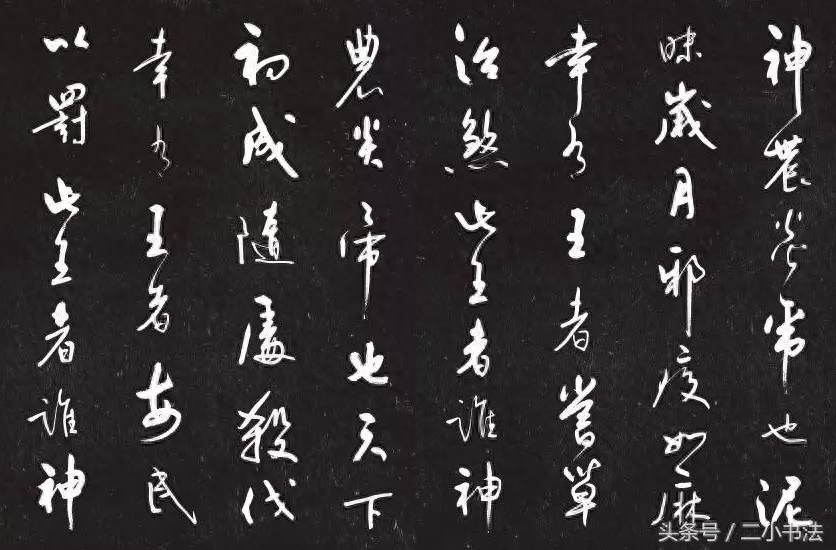 神農炎帝也泥
昧歲月邪疫如麻
幸有王者嘗草
治煞此王者誰神
農炎帝也天下
初成隨處殺伐
幸有王者安民
以罰此王者誰神
头条号 / 二小书法